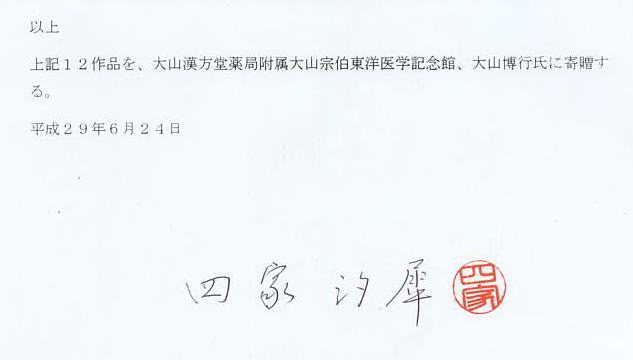 以上
上記１２作品を、大山漢方堂薬局附属大山宗伯東洋医学記念館、大山博行氏に寄贈す
る。
平成２９年６月２４日
四家 汐犀
四家